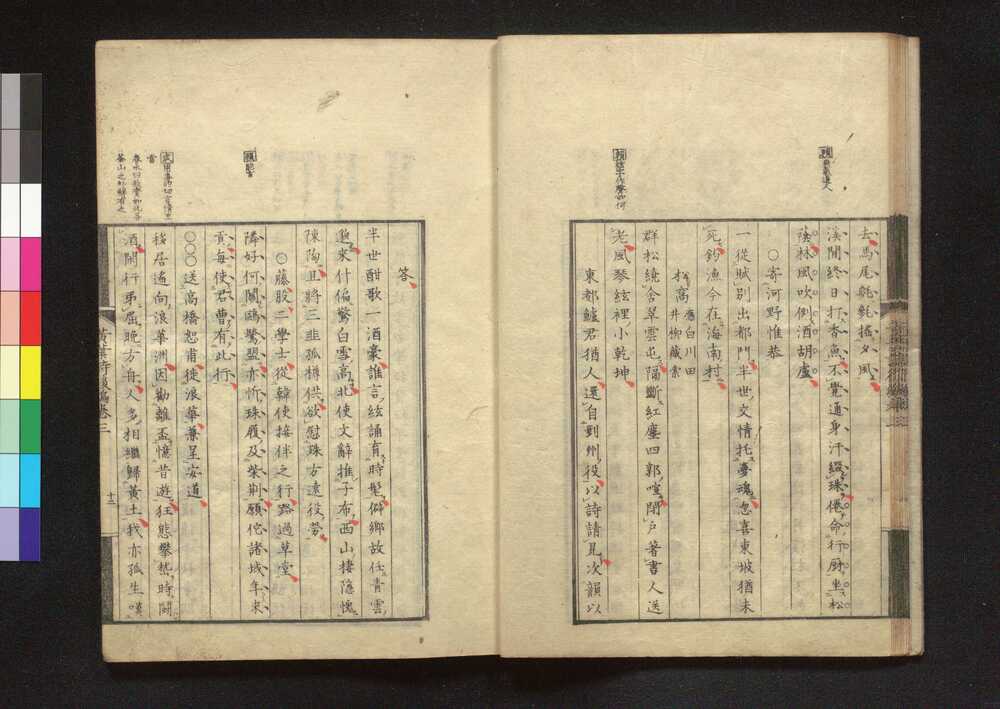 去馬尾毿毿搖夕風
溪閒終日打香魚不覺通身汗綴珠倦命行廚坐松
蔭林風吹倒酒胡盧
○寄河野惟恭
一從賦別出都門半世交情托夢魂忽喜東坡猶未
死釣漁今在海南村
松窩
應白川田
井柳藏索
群松繞舍草雲屯隔斷紅塵四郭喧閉戶著書人送
老風琴絃裡小乾坤
東都鱸君猶人還自對州役以詩請見次韻以
答
半世酣歌一酒豪誰言絃誦有時髦僻鄉故任青雲
邈來什偏驚白雪高北使文辭推子布西山棲隱愧
陳陶且將三韭孤樽供欲慰殊方遠役勞
○藤股二學士從韓使接伴之行路過草堂
隣好何關鷗鷺盟亦忻珠履及柴荊願佗諸域年來
貢每使君曹有此行
○○○送高橋恕甫徙浪華兼呈安道
移居遙向浪華洲因勸離盃憶昔遊狂態攀熱時鬪
酒閒行弟屈晚方舟人多相繼歸黃土我亦孤生嘆
黃葉夕陽村舍詩後編卷三
十二